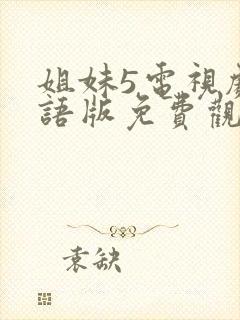 姐妹5電視劇
語版免費觀
袁缺